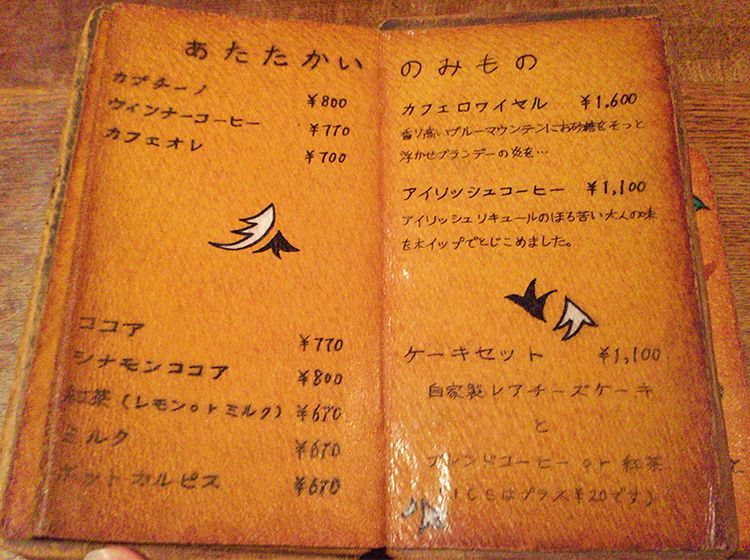 あたたかい のみもの
カプチーノ ¥800
ウィンナーコーヒー ¥770
カフェオレ ¥700
ココア ¥770
シナモンココア ¥800
紅茶(レモンorミルク) ¥670
ミルク ¥670
ホットカルピス ¥670
カフェロワイヤル ¥1,600
香り高いブルーマウンテンにお砂糖をそっと
浮かせブランデーの炎を…
アイリッシュコーヒー ¥1,100
アイリッシュリキュールのほろ苦い大人の味
をホイップでとじこめました。
ケーキセット ¥1,100
自家製レアチーズケーキ
と
ブレンドコーヒー or 紅茶
(ICEはプラス¥20です)